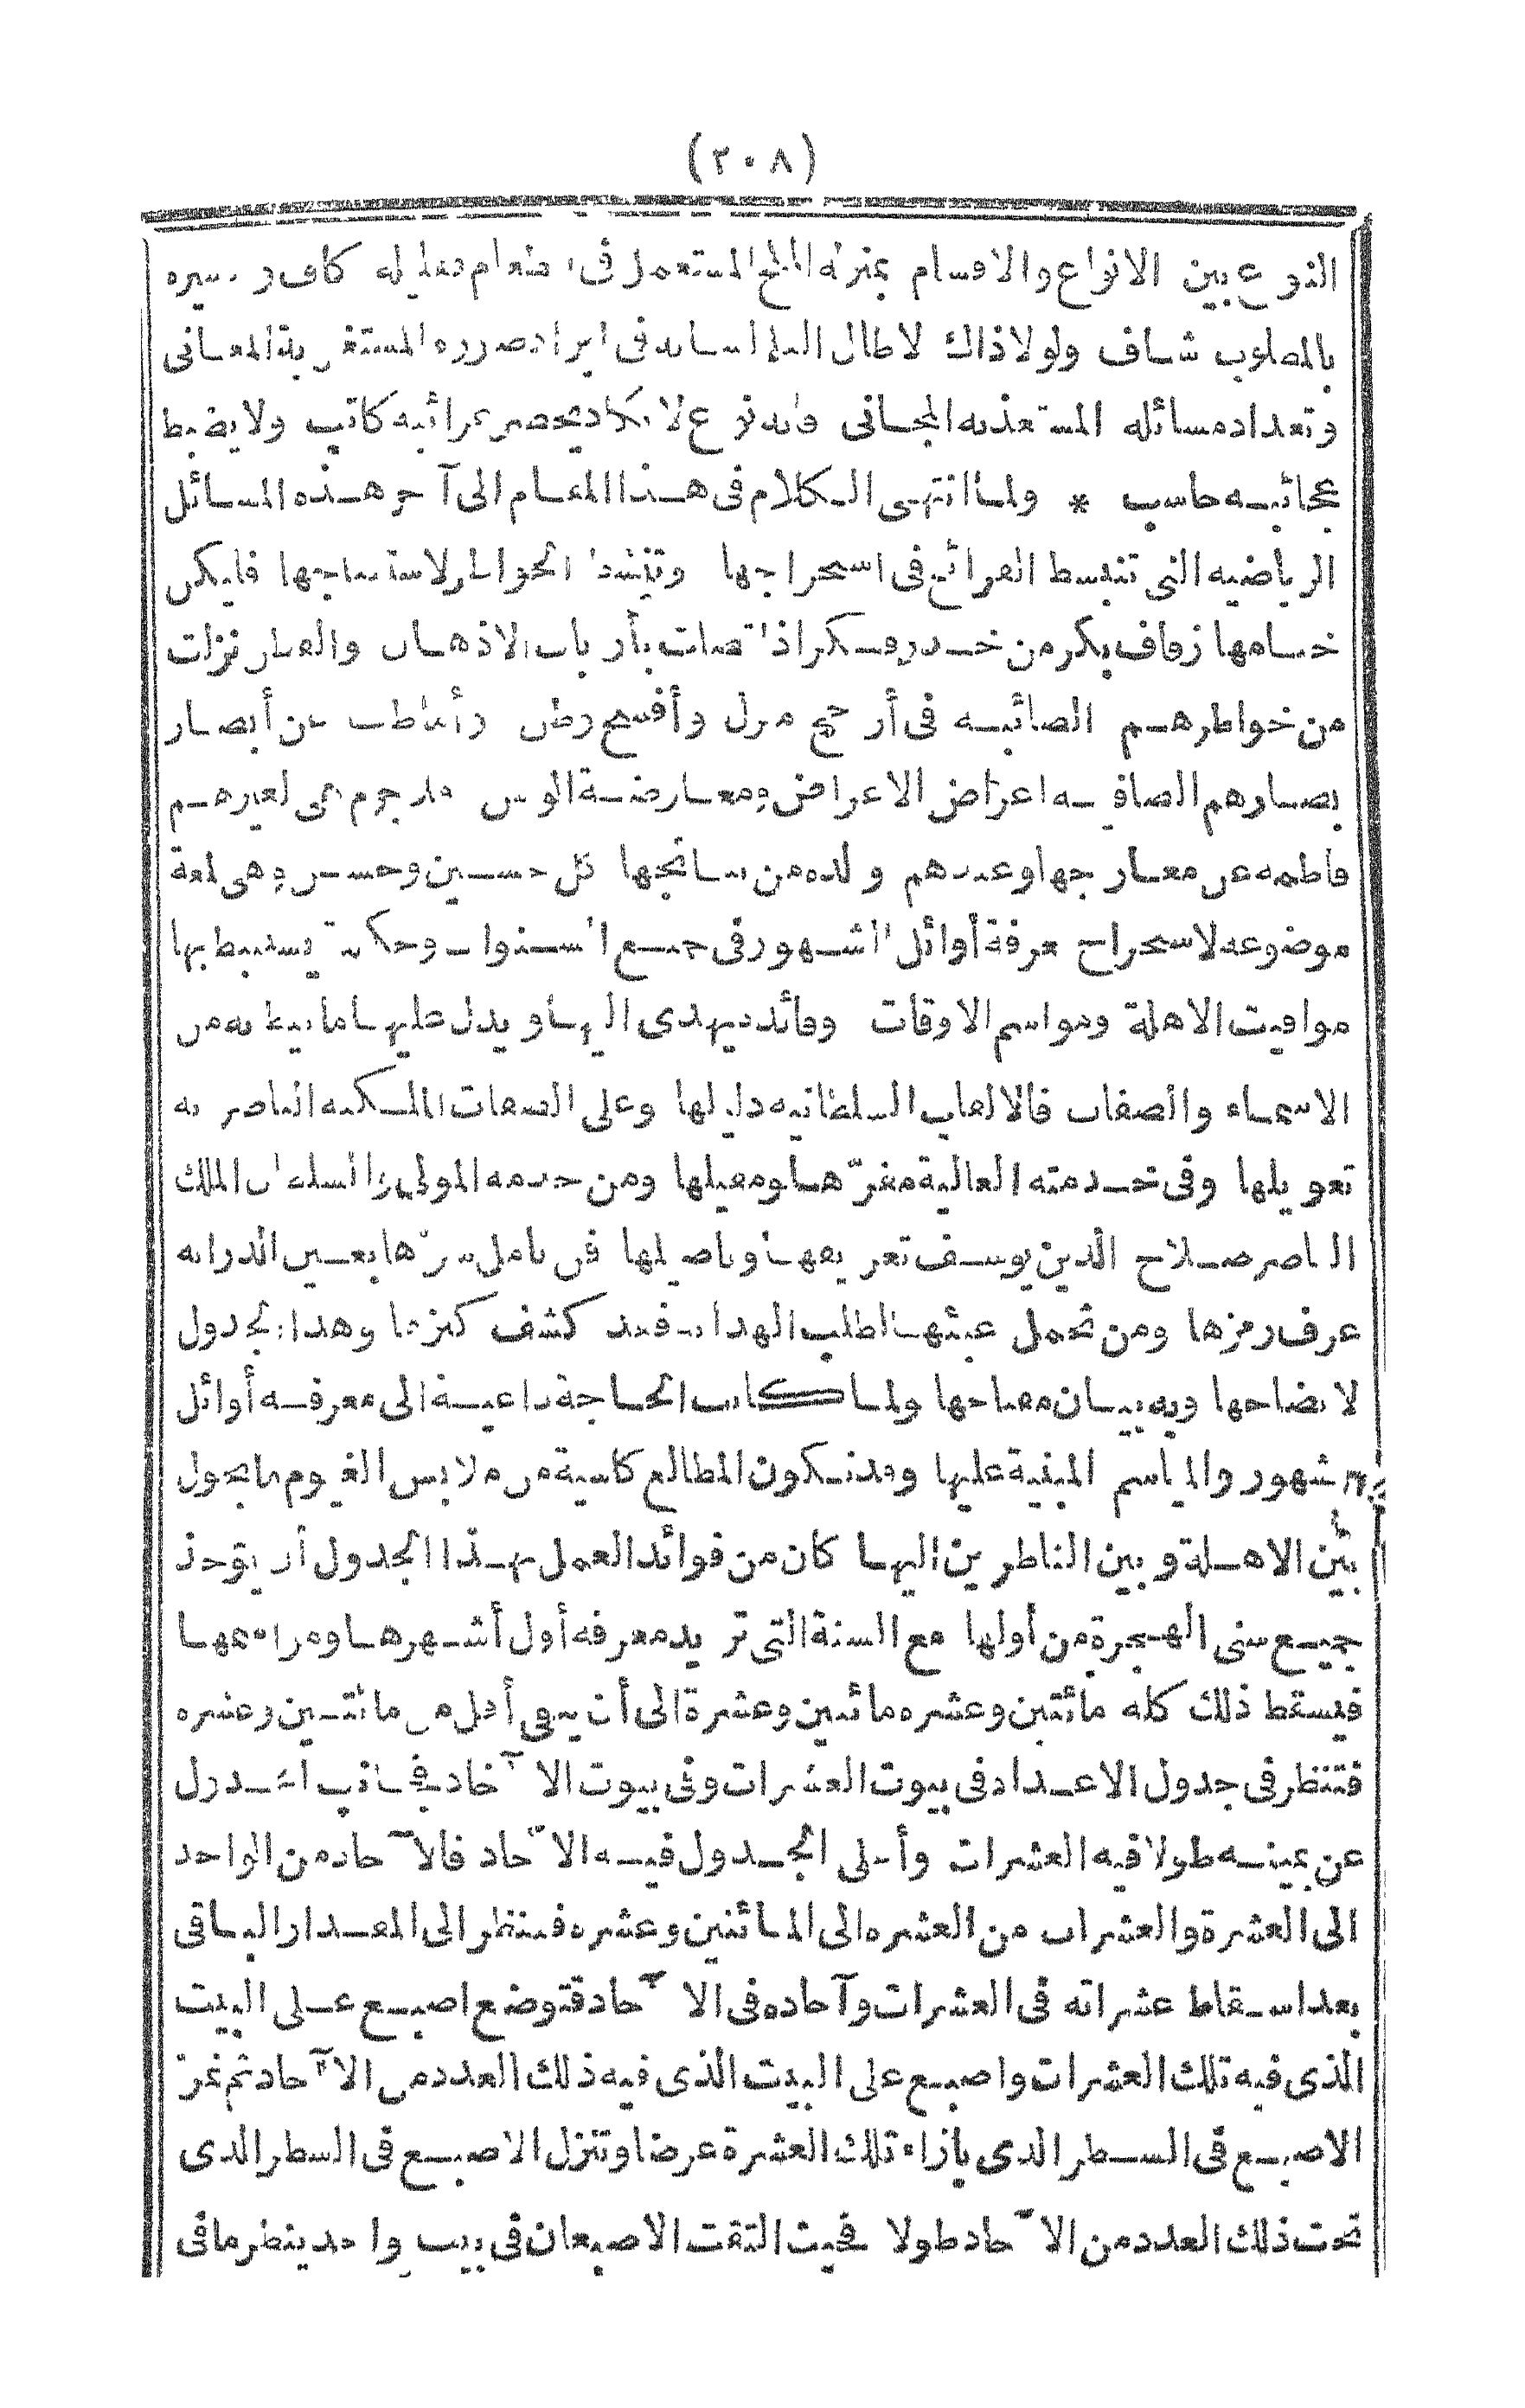 (٢٠٨)
النوع بين الانواع والاقسام بمنزلة الملح المستعمل فى الطعام فقليله كاف ويسيره
بالمطلوب شاف ولولا ذاك لاطال البلد لسانه فى ايراد صوره المستغربة المعانى
وتعداد مسائله المستعذبه المجانى فانه نوع لا يكاد يحصر غرائبه كاتب ولا يضبط
عجائبه حاسب * ولما انتهى الكلام فى هذا المقام الى آخر هذه المسائل
الرياضيه التى تنبسط القرائح فى استخراجها وتنشد الخواطر لاستنتاجها فليكن
ختامها زفاف بكر من خدر فكر اذا اتصلت بأرباب الاذهان والفطن نزلت
من خواطرهم الصائبه فى أرحج منزل وأفسح وطن وأماطت عن أبصار
بصائرهم الصافيه اعراض الاعراض ومعارضة الوسن
فاطمه عن معارجها وعندهم ولده من نتائجها كل حسين وحسن وهى لمعة
موضوعه لاستخراج معرفة أوائل الشهور فى جميع السنوات وحكمة يستنبط بها
مواقيت الاهلة ومواسم الاوقات وفائده يهدى اليها ويدل عليها ما نيط به من
الاسماء والصفات فالالقاب السلطانيه دليلها وعلى الصفات الملكيه الناصريه
تعويلها وفى خدمته العالية مقرّها ومقيلها ومن خدمه المولى السلطان الملك
الناصر صلاح الدين يوسف تعريفها وتاصيلها فمن تامل سرّها بعين الدرايه
عرف رمزها ومن تحمل عبئها لطلب الهدايه فقد كشف كنزها وهذا الجدول
لايضاحها وبه بيان مفتاحها ولما كانت الحاجة داعية الى معرفه أوائل
الشهور والمواسم المبنية عليها وقد تكون المطالع كاسية من ملابس الغيوم ما يحول
بين الاهلة وبين الناظرين اليها كان من فوائد العمل بهذا الجدول أن يؤخذ
جميع سنى الهجرة من أولها مع السنة التى تريد معرفه أول أشهرها ومواسمها
فيسقط ذلك كله مائتين وعشره مائتين وعشرة الى أن يبقى أقل من مائتين وعشره
فتنظر فى جدول الاعداد فى بيوت العشرات وفى بيوت الآحاد فجانب الجدول
عن يمينه طولا فيه العشرات وأعلى الجدول فيه الآحاد فالآحاد من الواحد
الى العشرة والعشرات من العشره الى المائتين وعشره فتنظر الى المقدار الباقى
بعد اسقاط عشراته فى العشرات وآحاده فى الآحاد فتوضع اصبع على البيت
الذى فيه تلك العشرات واصبع على البيت الذى فيه ذلك العدد من الآحاد ثم تمرّ
الاصبع فى السطر الذى بازاء تلك العشرة عرضا وتنزل الاصبع فى السطر الذى
تحت ذلك العدد من الآحاد طولا فحيث التقت الاصبعان فى بيت واحد ينظر ما فى